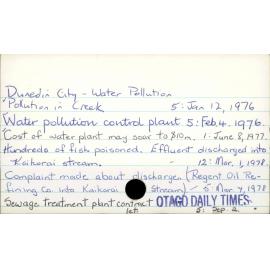 Dunedin City - Water Pollution
Pollution in Creek 5: Jan 12, 1976
Water pollution control plant 5: Feb. 4. 1976.
Cost of water plant may soar to $10m. 1: June 8, 1977.
Hundreds of fish poisoned. Effluent discharged into
Kaikorai stream. - 12: Mar. 1, 1978.
Complaint made about discharge (Regent Oil Re-
fining Co. into Kaikorai Stream) - 5: Mar. 7, 1978
Sewage treatment plant contract OTAGO DAILY TIMES
let: 5: Sep 2